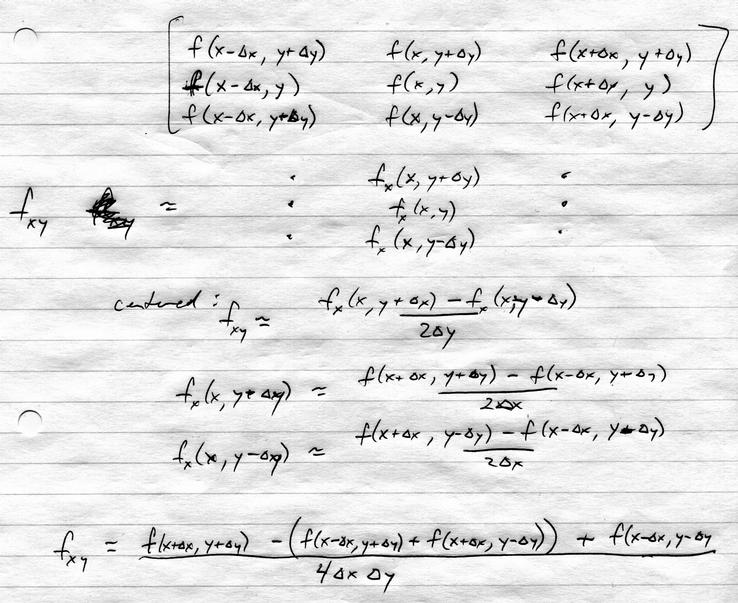 [ f(x-Δx, y+Δy) f(x, y+Δy) f(x+Δx, y+Δy)
f(x-Δx, y) f(x,y) f(x+Δx, y)
f(x-Δx, y-Δy) f(x, y-Δy) f(x+Δx, y-Δy) ]
. f_x(x, y+Δy) .
f_xy ≈ . f_x(x,y) .
. f_x(x, y-Δy) .
centered: f_xy ≈ f_x(x, y+Δx) - f_x(x, y-Δy) / 2Δy
f_x(x, y+Δy) ≈ f(x+Δx, y+Δy) - f(x-Δx, y+Δy) / 2Δx
f_x(x, y-Δy) ≈ f(x+Δx, y-Δy) - f(x-Δx, y-Δy) / 2Δx
f_xy = f(x+Δx, y+Δy) - (f(x-Δx, y+Δy) + f(x+Δx, y-Δy)) + f(x-Δx, y-Δy / 4ΔxΔy